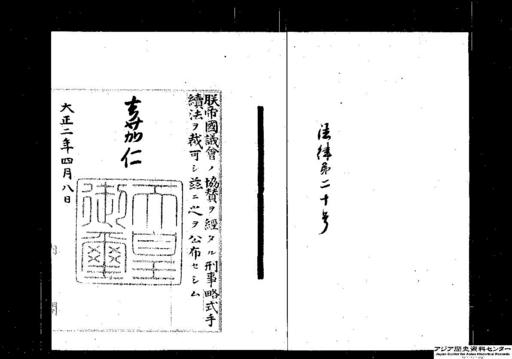 法律第二十号
朕帝國議會ノ協賛ヲ經タル刑事略式手
續法ヲ裁可シ茲ニ之ヲ公布セシム
嘉仁
天皇
御璽
大正二年四月八日
内閣
アジア歴史資料センター
Japan Center for Asian Historical Records